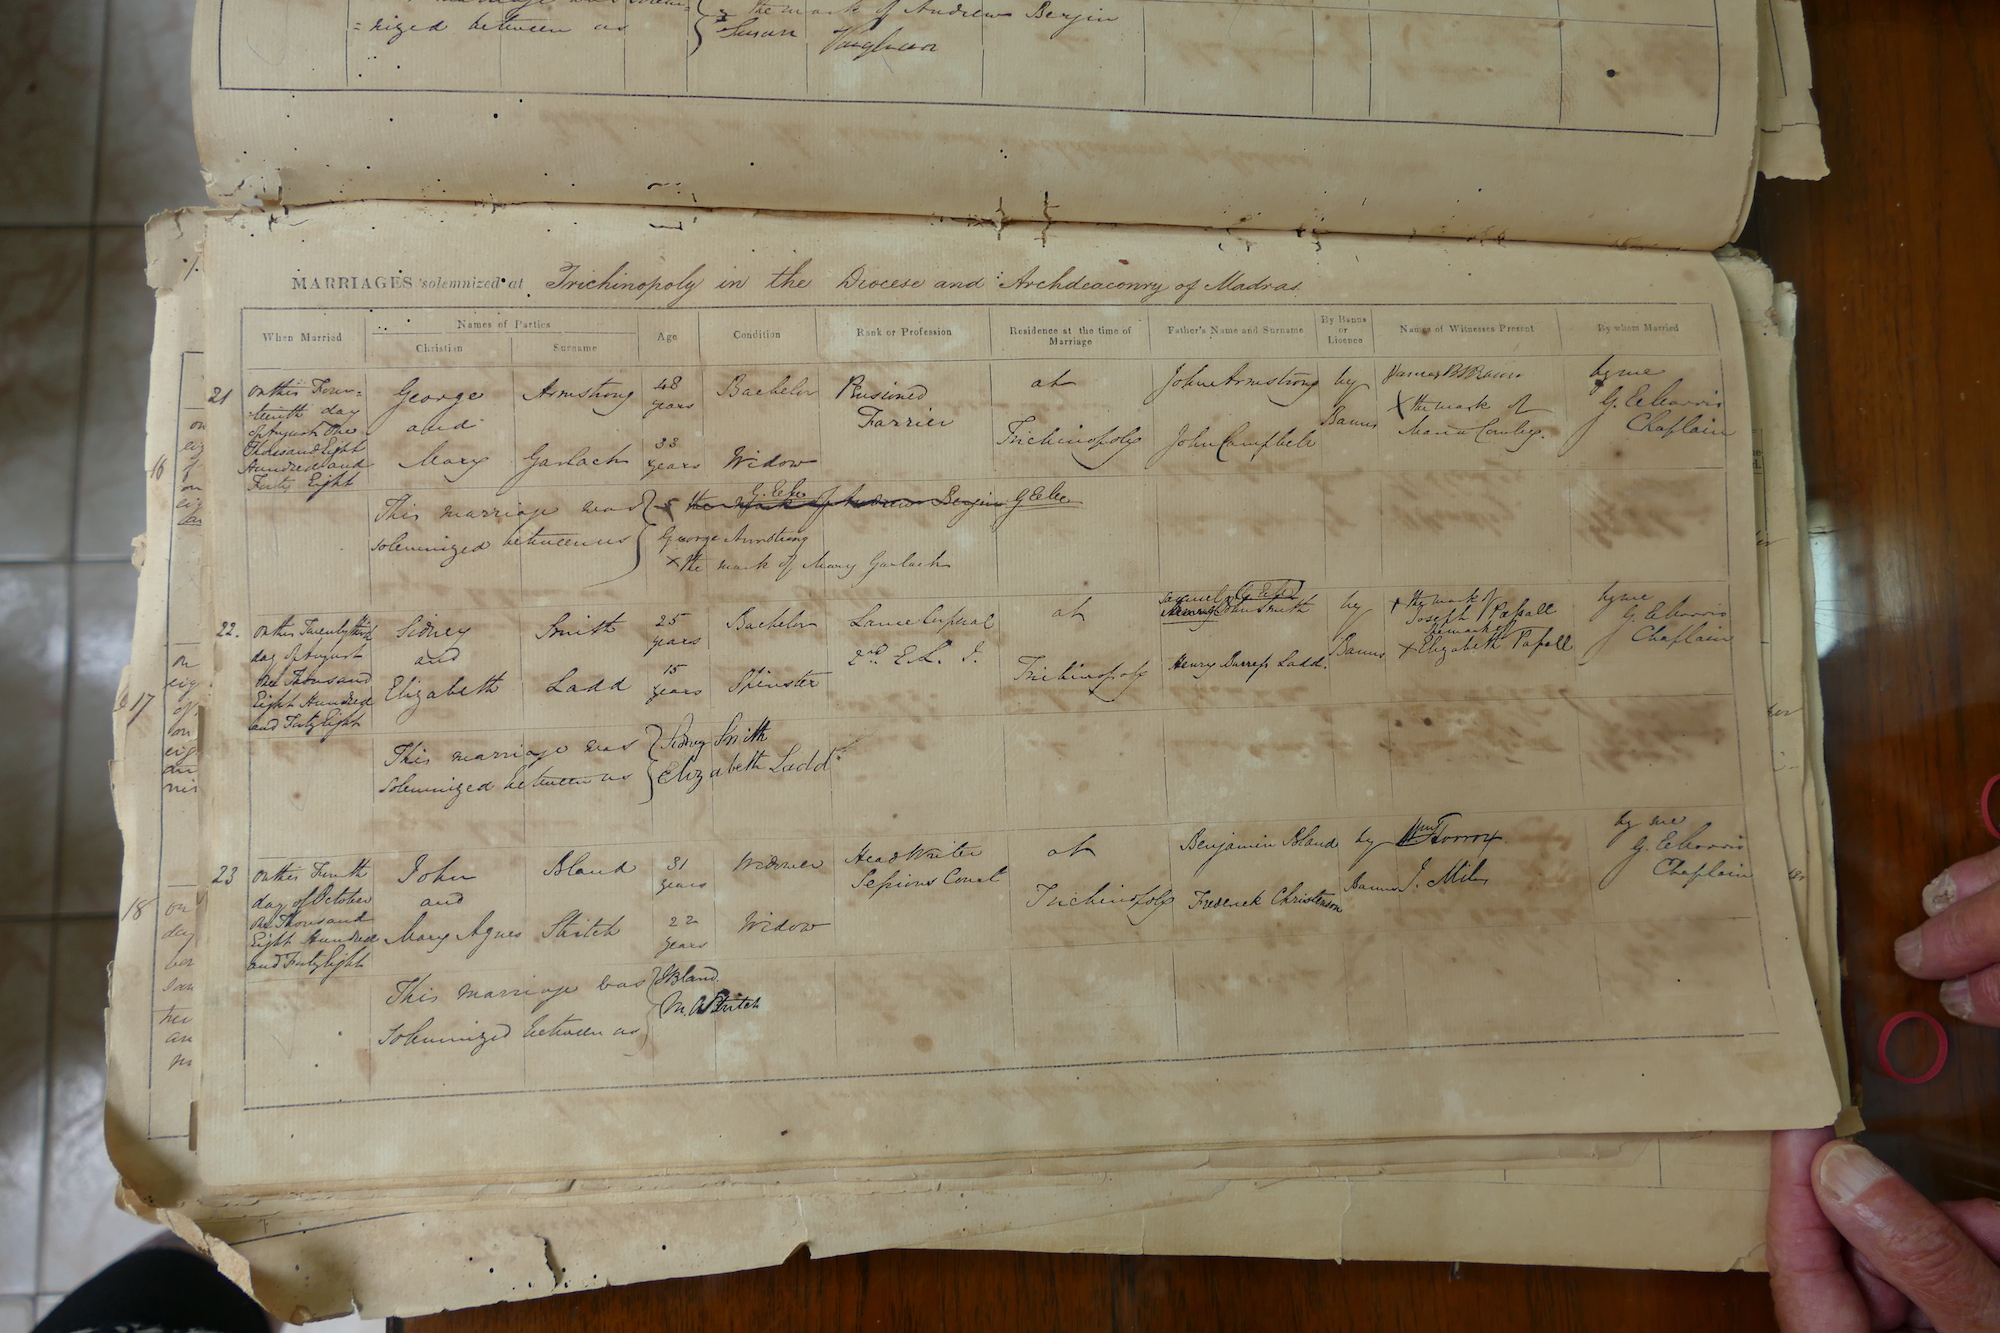 = nized between us
the mark of Andrew Bergin
Susan Vaughan
MARRIAGES solemnized at Trichinopoly in the Diocese and Archdeaconry of Madras
When Married
Names of Parties
Christian
Surname
Age
Condition
Rank or Profession
Residence at the time of
Marriage
Father's Name and Surname
By Banns
or
Licence
Names of Witnesses Present
By whom Married
21
on this Four=
teenth day
of August One
Thousand Eight
Hundred and
Forty Eight
George
and
Mary
Armstrong
Garlach
48
years
33
years
Bachelor
Widow
Pensioned
Farrier
at
Trichinopoly
John Armstrong
John Campbell
by
Banns
X the mark of
Maria
by me
Chaplain
This marriage was
solemnized between us
the mark of Andrew Bergin
George Armstrong
X the mark of Mary Garlach
22.
on this Twenty third
day of August
One Thousand
Eight Hundred
and Forty Eight
Sidney
and
Elizabeth
Smith
Ladd
25
years
15
years
Bachelor
Spinster
Lance Corporal
2nd E. L. I.
at
Trichinopoly
John Smith
Henry Ladd.
by
Banns
X the mark of
Joseph Pafsall
the mark of
X Elizabeth Pafsall
by me
Chaplain
This marriage was
solemnized between us
Sidney Smith
Elizabeth Ladd
23
on this Fourth
day of October
One Thousand
Eight Hundred
and Forty Eight
John
and
Mary Agnes
Bland
Stritch
31
years
22
years
Widower
Widow
Head Writer
Sessions Court
at
Trichinopoly
Benjamin Bland
Frederick Christenson
by
Banns
J. Miles
by me
Chaplain
This marriage was
solemnized between us
J Bland.
M. A Stritch
16
17
18